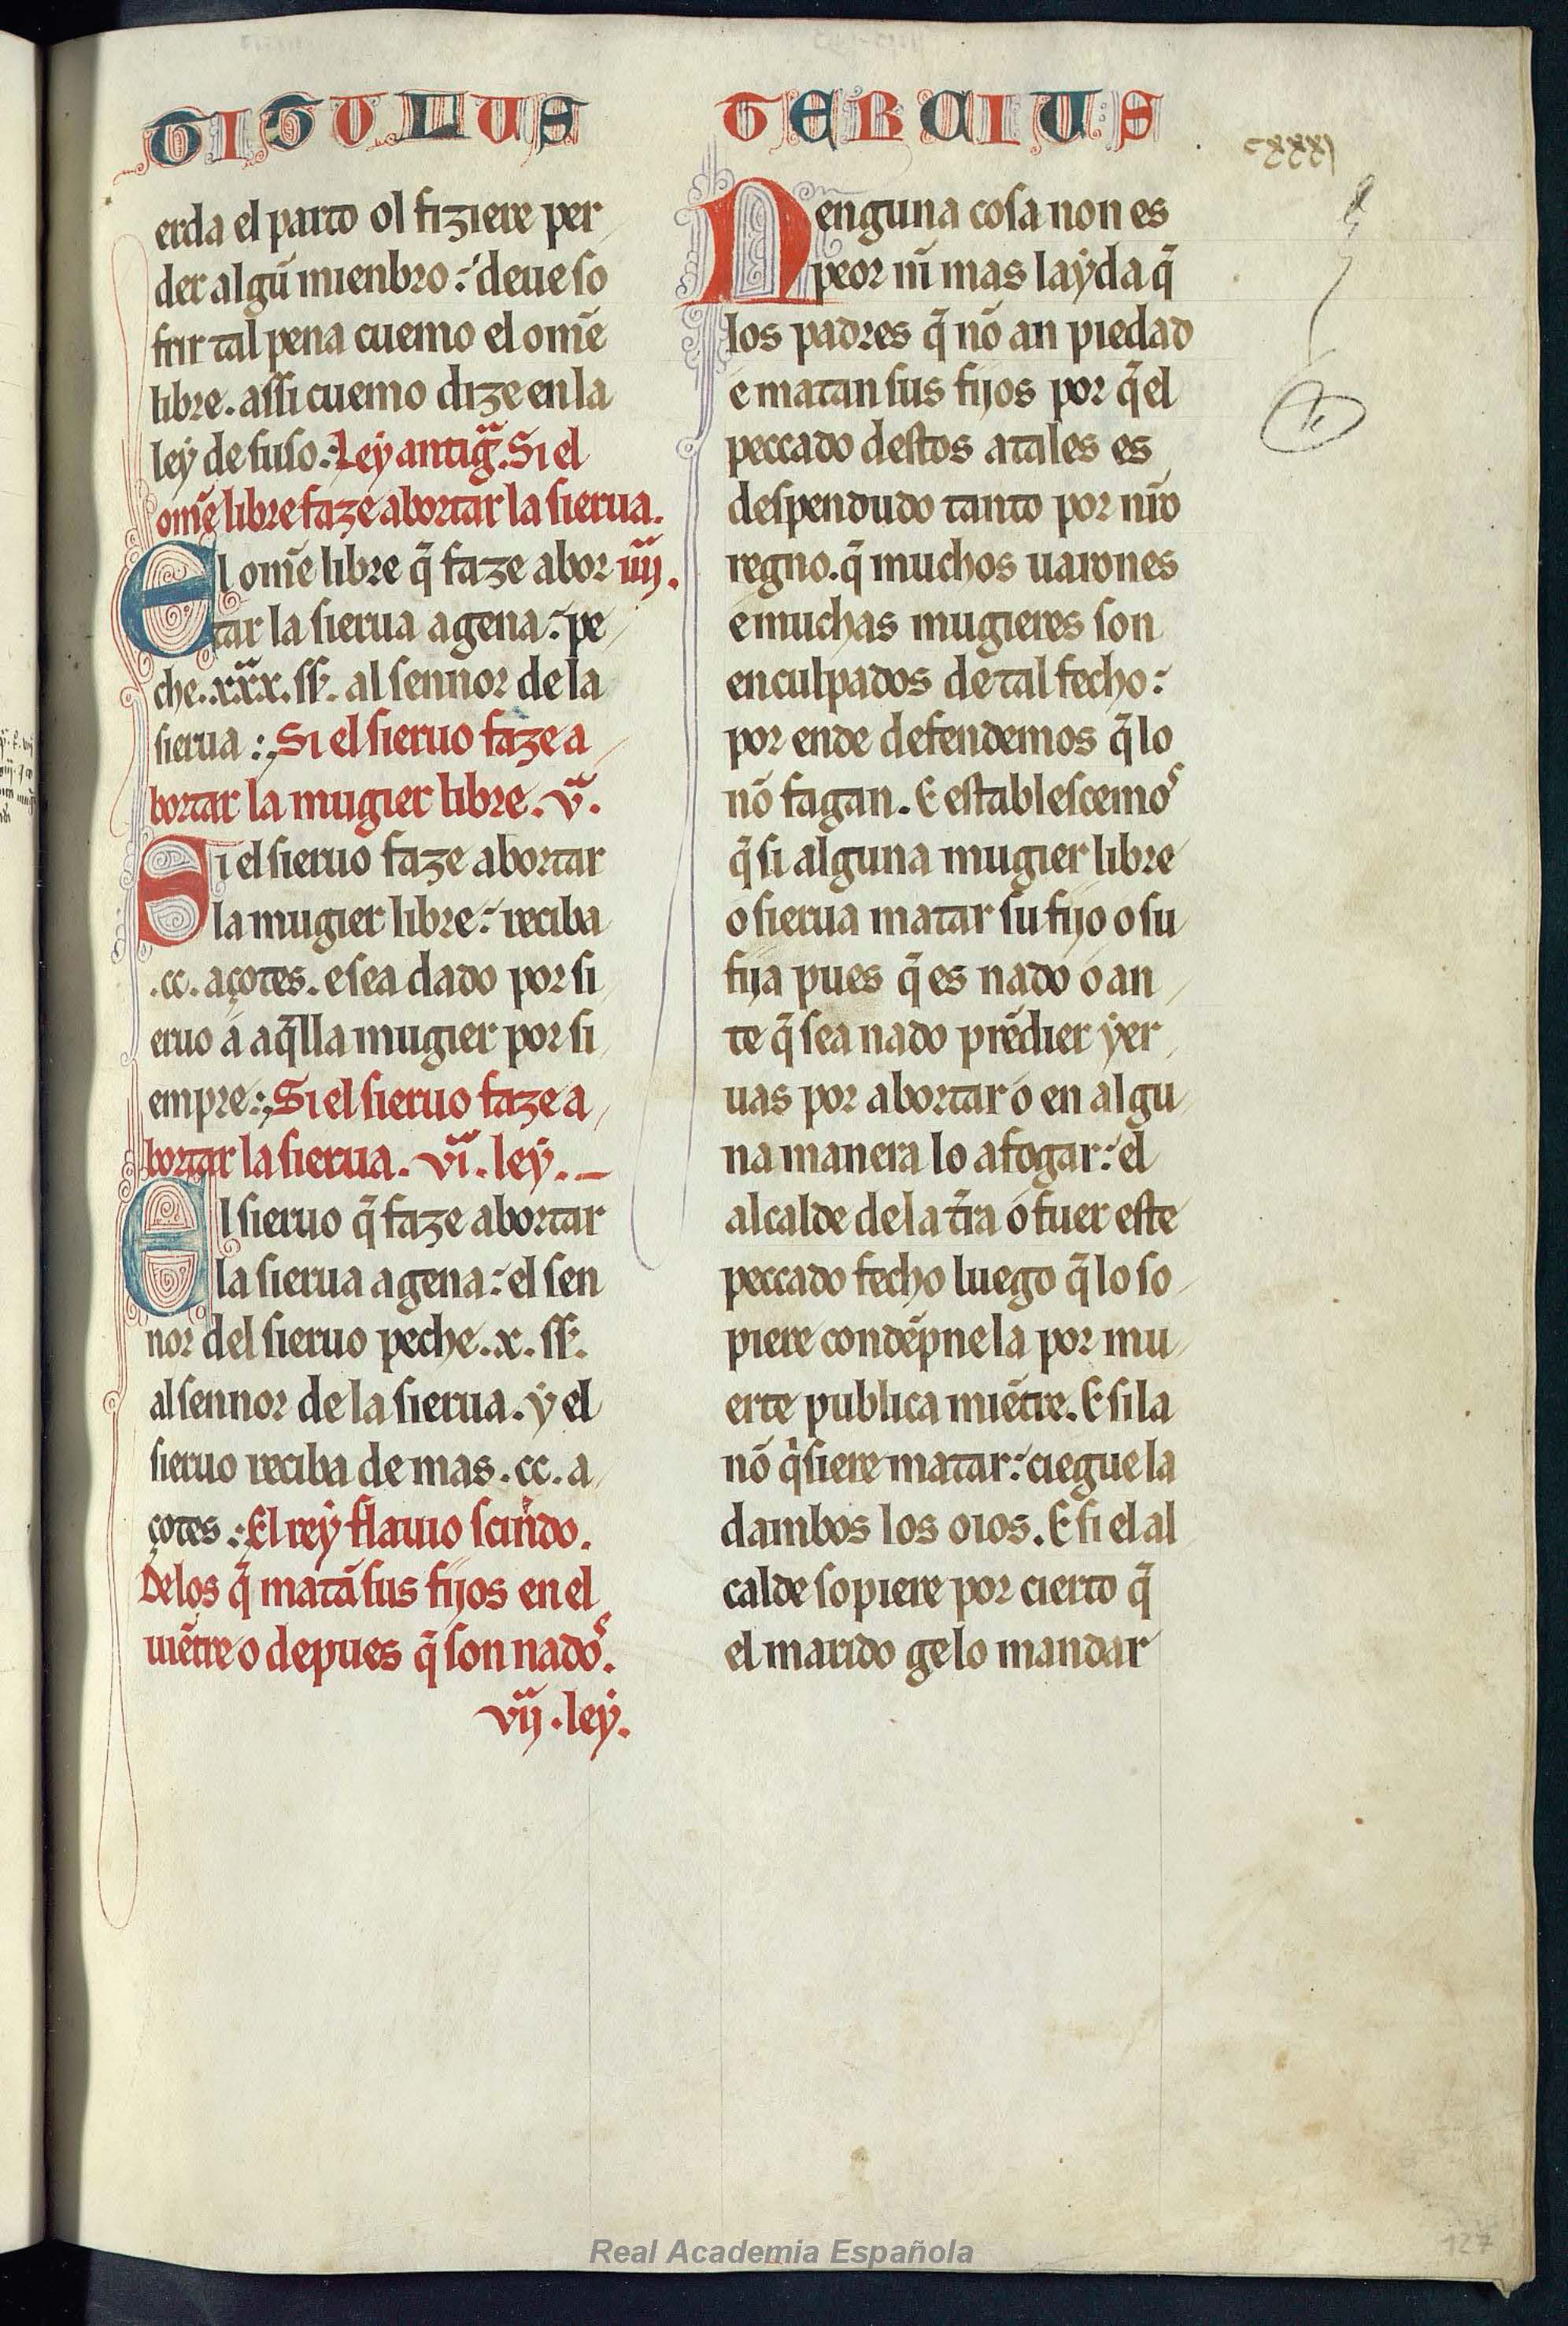 TITULUS TERCIUS
cxxxj
erda el parto ol fiziere per
der algũ mienbro : deue so
frir tal pena cuemo el om̃e
libre . assi cuemo dize en la
ley de suso : Ley antiga . Si el
om̃e libre faze abortar la sierua .
El om̃e libre q̃ faze abor iiij .
tar la sierua agena : pe
che . xxx . ss̃ . al sennor de la
sierua : Si el sieruo faze a
bortar la mugier libre . v̈ .
Si el sieruo faze abortar
la mugier libre : reciba
. cc . açotes . e sea dado por si
eruo á aq̃lla mugier por si
empre : Si el sieruo faze a
bortar la sierua . vi . ley .
El sieruo q̃ faze abortar
la sierua agena : el sen
nor del sieruo peche . x . ss̃ .
al sennor de la sierua . ẏ el
sieruo reciba de mas . cc . a
çotes : El rey flauio
De los q̃ matã sus fijos en el
uiẽtre o depues q̃ son nados .
vij . ley .
Nenguna cosa non es
peor nĩ mas layda q̃
los padres q̃ nõ an piedad
e matan sus fijos por q̃ el
peccado destos atales es
despendudo tanto por nr̃o
regno . q̃ muchos uarones
e muchas mugieres son
enculpados de tal fecho :
por ende defendemos q̃ lo
nõ fagan . E establescemos
q̃ si alguna mugier libre
o sierua matar su fijo o su
fija pues q̃ es nado o an
te q̃ sea nado prẽdier yer
uas por abortar o en algu
na manera lo afogar : el
alcalde de la tr̃a o fuer este
peccado fecho luego q̃ lo so
piere condẽpnela por mu
erte publica miẽtre . E si la
nõ q̇siere matar : ciegue la
dambos los oios . E si el al
calde sopiere por cierto q̃
el marido gelo mandar
127
Real Academia Española